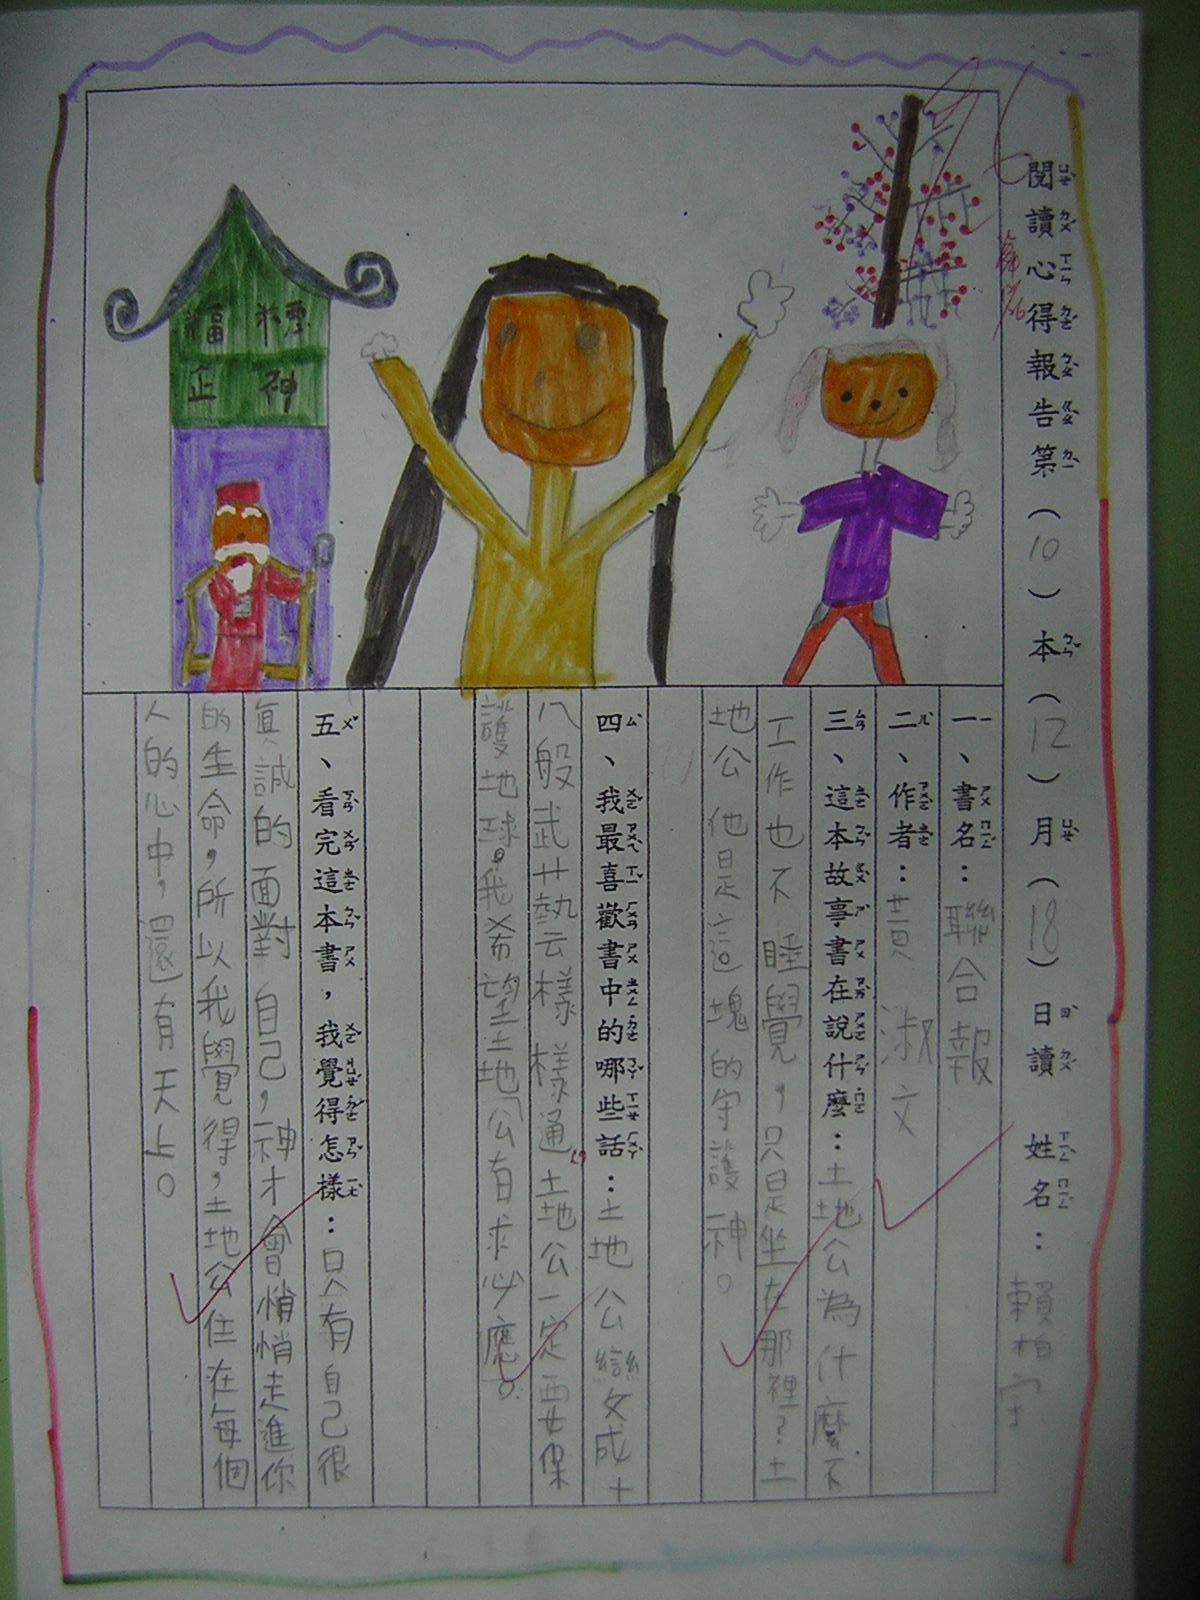 閱讀心得報告第(10)本(12)月(18)日讀 姓名:賴柏
一、書名:聯合報
二、作者:黃淑文
三、這本故事書在說什麼:土地公為什麼不
工作也不睡覺,只是坐在那裡?土
地公他是這塊的守護神。
四、我最喜歡書中的哪些話:土地公變成十
八般武藝樣樣通,土地公一定要保
護地球,我希望土地公有求必應。
五、看完這本書,我覺得怎樣:只有自己很
真誠的面對自己,神才會悄悄走進你
的生命,所以我覺得,土地公住在每個
人的心中,還有天上。
福德
正神